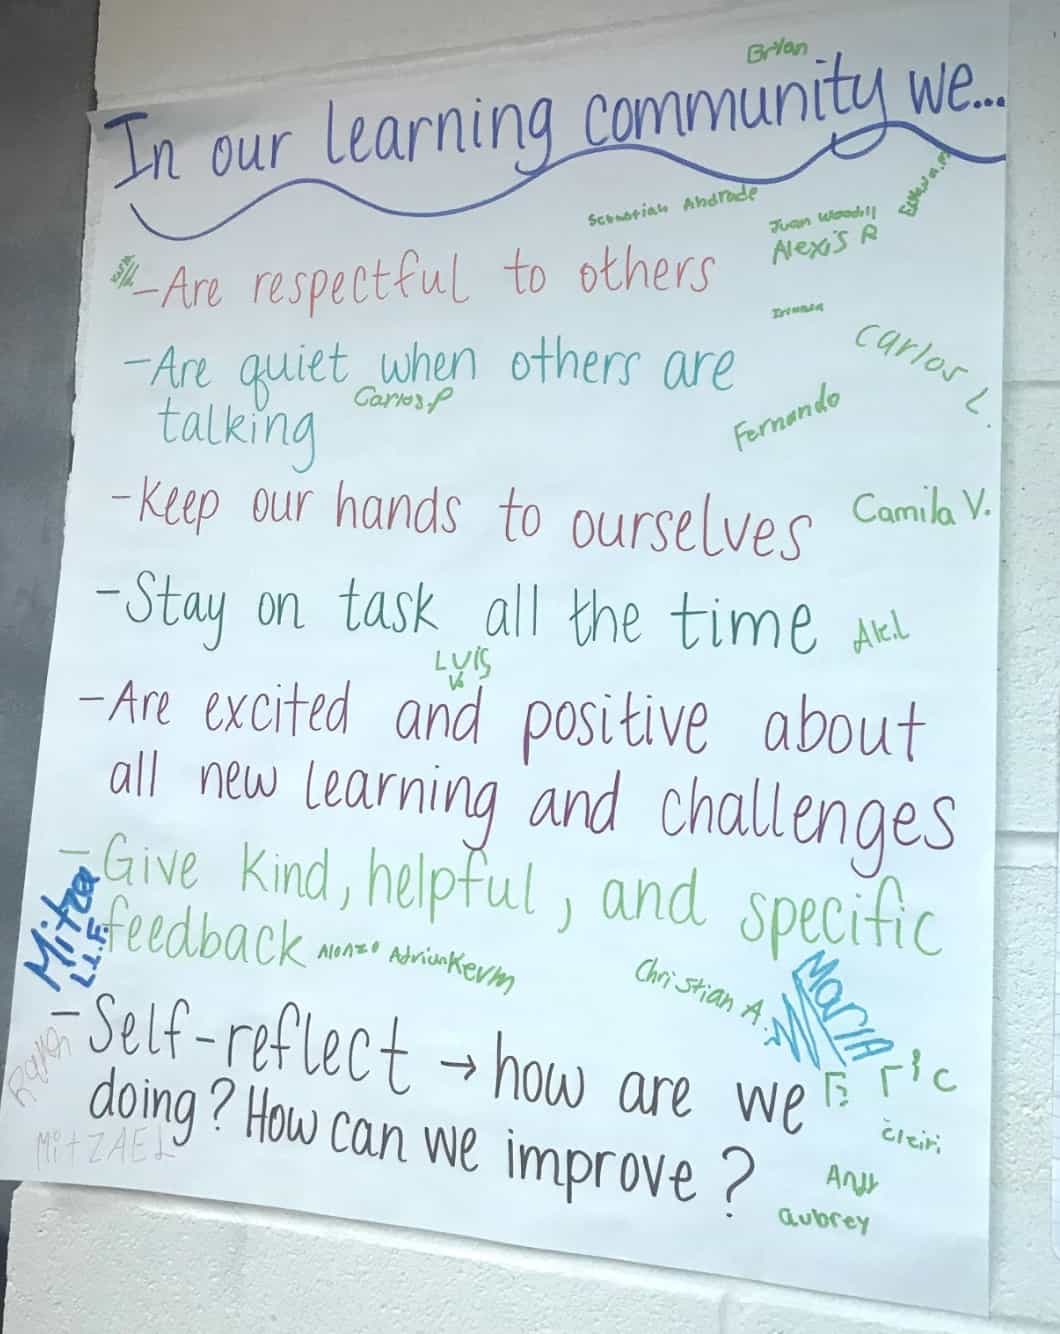 Bryan
In our learning community we...
Sebastian Andrade
Juan
Alexis R
-Are respectful to others
Carlos L.
-Are quiet when others are
Carlos.P
Fernando
talking
-Keep our hands to ourselves
Camila V.
-Stay on task all the time
LUIS
-Are excited and positive about
all new learning and challenges
-Give kind, helpful, and specific
Mitza
L.L.F.
feedback
Alonzo Adrian Kevin
Christian A.
MariA
-Self-reflect → how are we
Eric
doing? How can we improve?
MitZAEL
aubrey